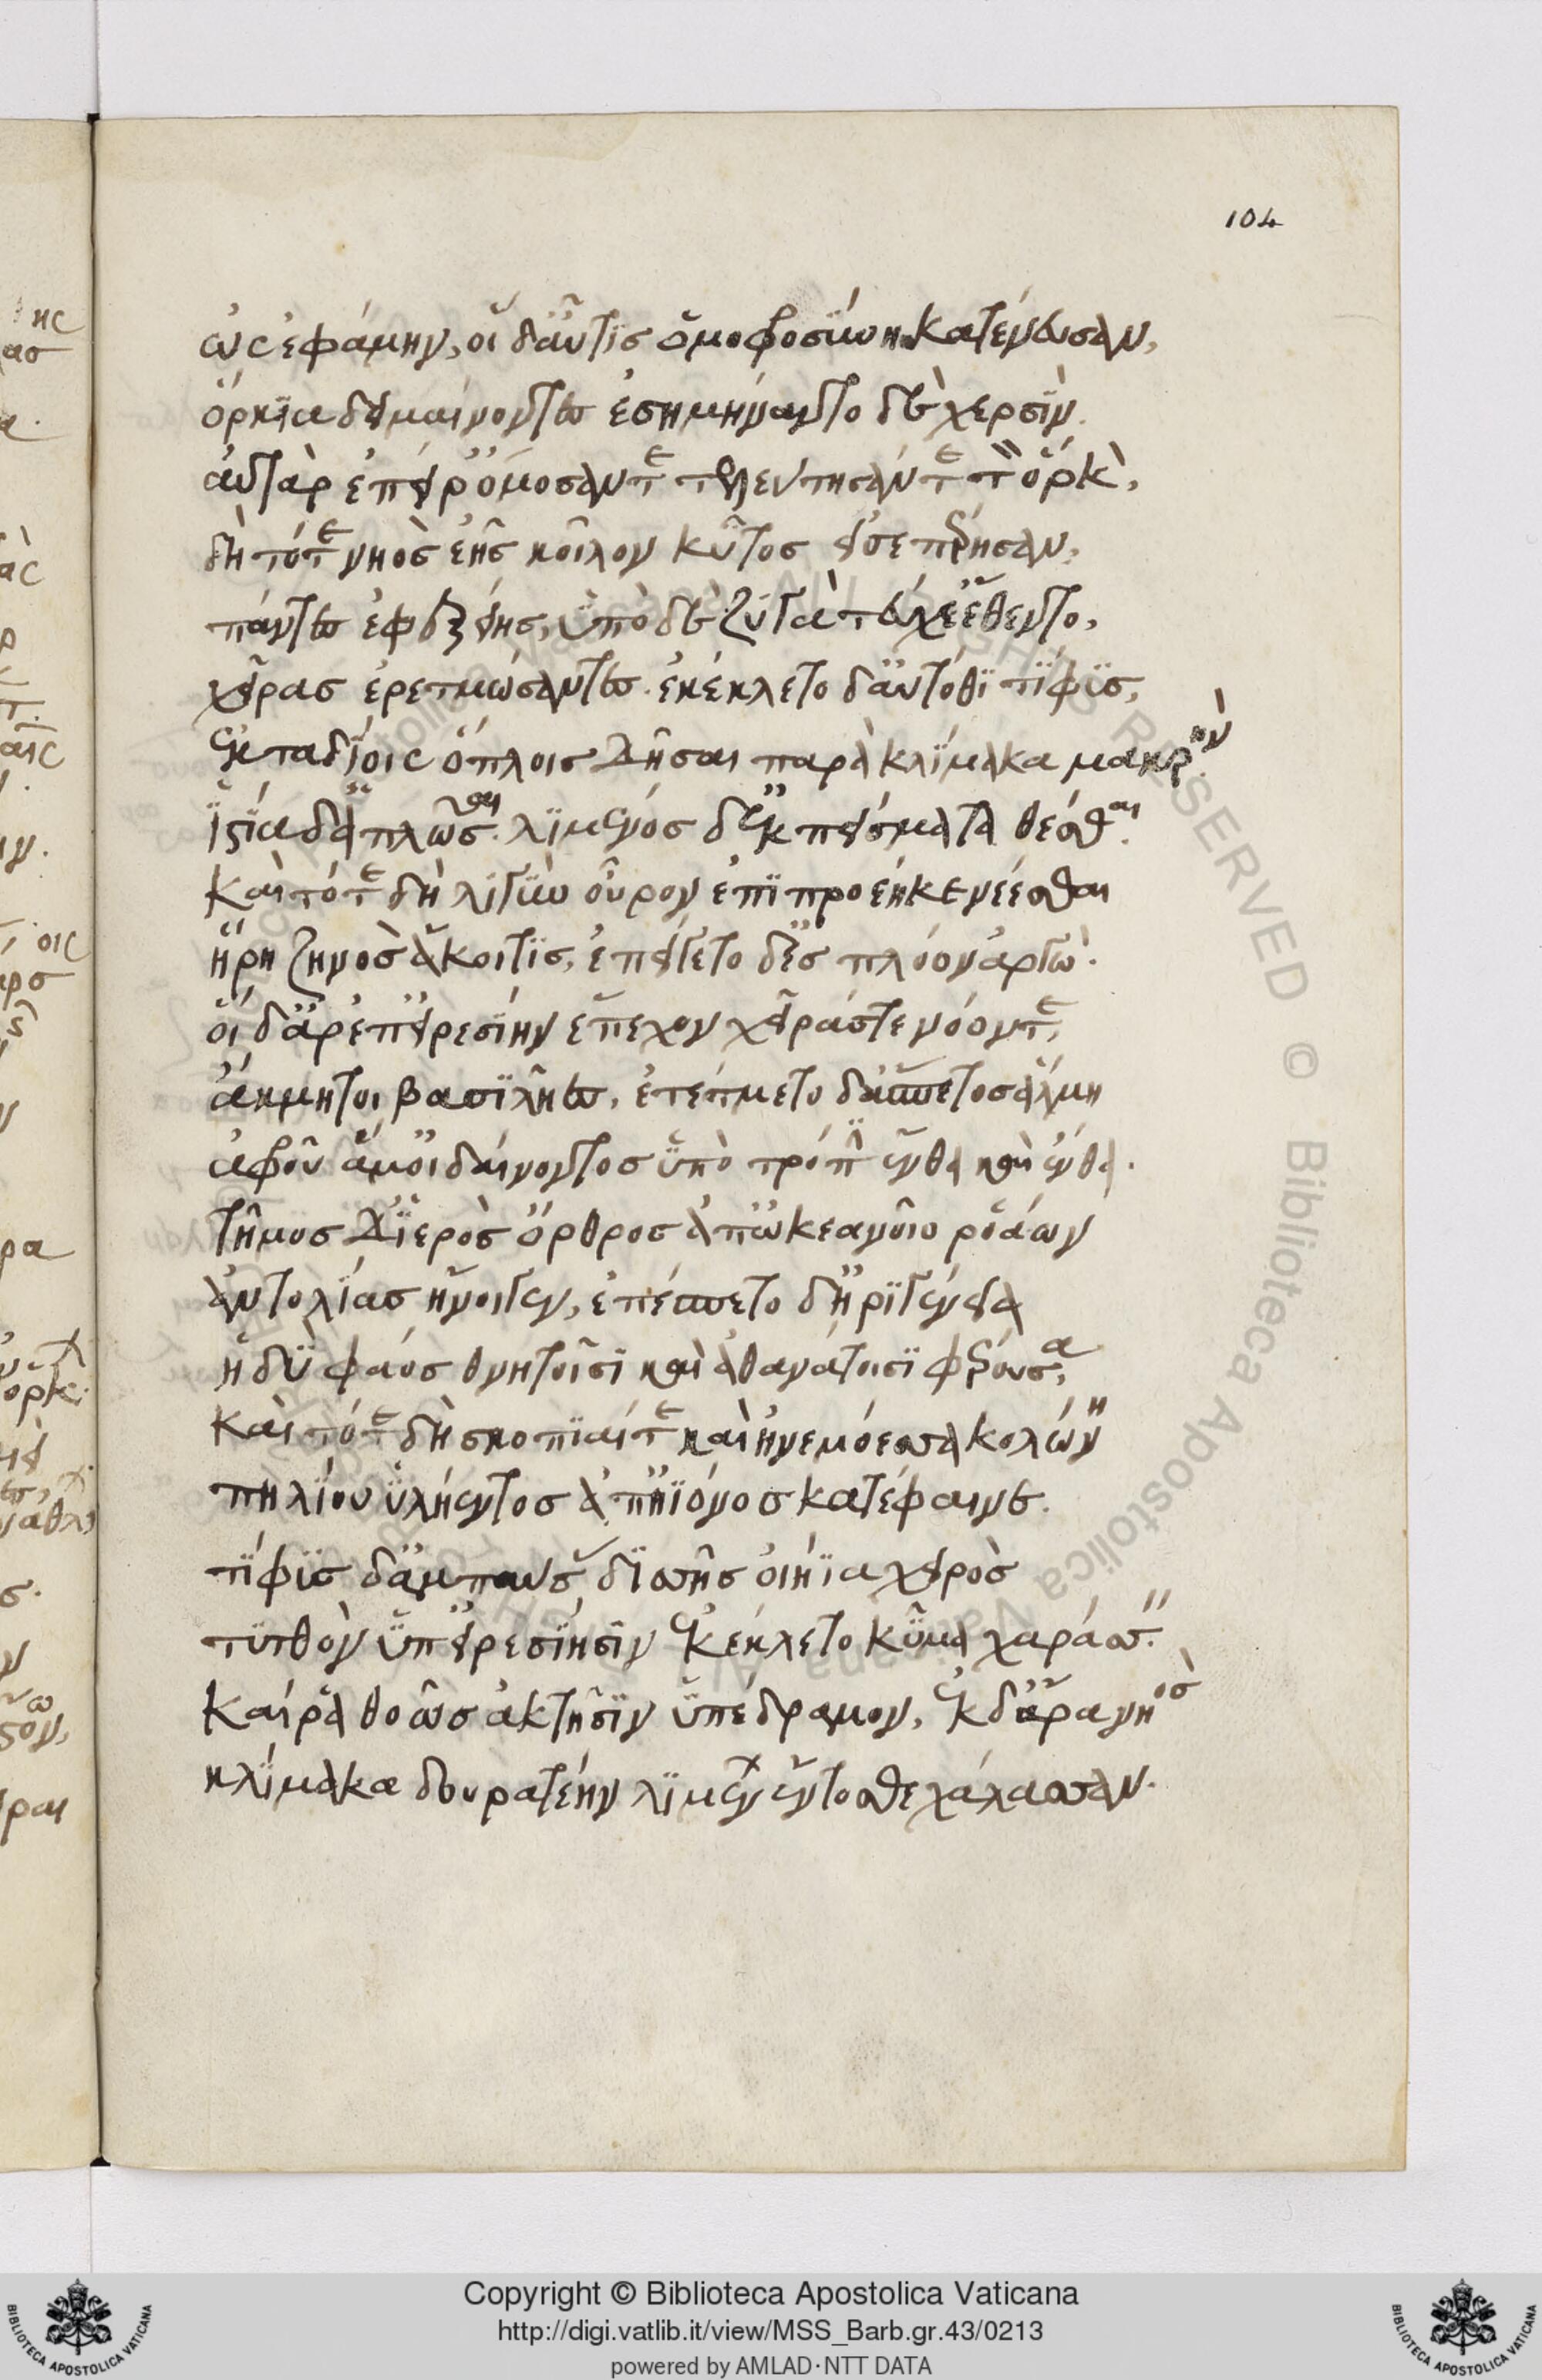 104
ὣς ἐφάμην, οἱ δ' αὖτις ὁμοφροσύνῃ κατένευσαν,
ὅρκια δημαίνοντες ἐσημήναντο δὲ χερσίν.
αὐτὰρ ἐπεί ῥ' ὄμοσάν τε τελεύτησάν τε τὸν ὅρκον,
δὴ τότε νηὸς ἑῆς κοῖλον κῦτος εἰσεπέρησαν,
πάντες ἐφεξείης, ὑπὸ δὲ ζυγὰ τεύχε' ἔθεντο,
χεῖρας ἐρετμώσαντες. ἐκέκλετο δ' αὐτόθι τίφυς,
ἐν ταδίοις ὅπλοις δῆσαι παρὰ κλίμακα μακρὴν
ἱστία δ' ἁπλῶσαι. λιμένος δ' ἐκ πείσματα θέσθαι.
καὶ τότε δὴ λιγὺν οὖρον ἐπιπροέηκε νέεσθαι
ἥρη ζηνὸς ἄκοιτις, ἐπείγετο δ' ἐς πλόον ἀργώ.
οἱ δ' ἄρ' ἐπ' εἰρεσίην ἔπεχον χεῖράς τε νόον τε,
ἄκμητοι βασιλῆες, ἐτέμνετο δ' ἄσπετος ἅλμη
ἀφροῦ ἅμ' οἰδαίνοντος ὑπὸ τρόπιν ἔνθα καὶ ἔνθα.
τῆμος δ' ἱερὸς ὄρθρος ἀπ' ὠκεανοῖο ῥοάων
ἀντολίας ἤνοιγεν, ἐπέσπετο δ' ἠριγένεια
ἡδὺ φάος θνητοῖσι καὶ ἀθανάτοισι φέρουσα,
καὶ τότε δὴ σκοπιαί τε καὶ ἠνεμόεσσα κολώνη
πηλίου ὑλήεντος ἀπ' ηϊόνος κατέφαινε.
τίφυς δ' ἄμπαυσε δισσῆς οἰήϊα χειρὸς
τυτθὸν ὑπ' εἰρεσίησιν ἐκέκλετο κῦμα χαράσσειν.
καί ῥα θοῶς ἀκτῆσιν ὑπέδραμον, ἐκ δ' ἄρα νηὸς
κλίμακα δουρατέην λιμένων ἔντοσθε χάλασσαν.
Copyright © Biblioteca Apostolica Vaticana
http://digi.vatlib.it/view/MSS_Barb.gr.43/0213
powered by AMLAD·NTT DATA